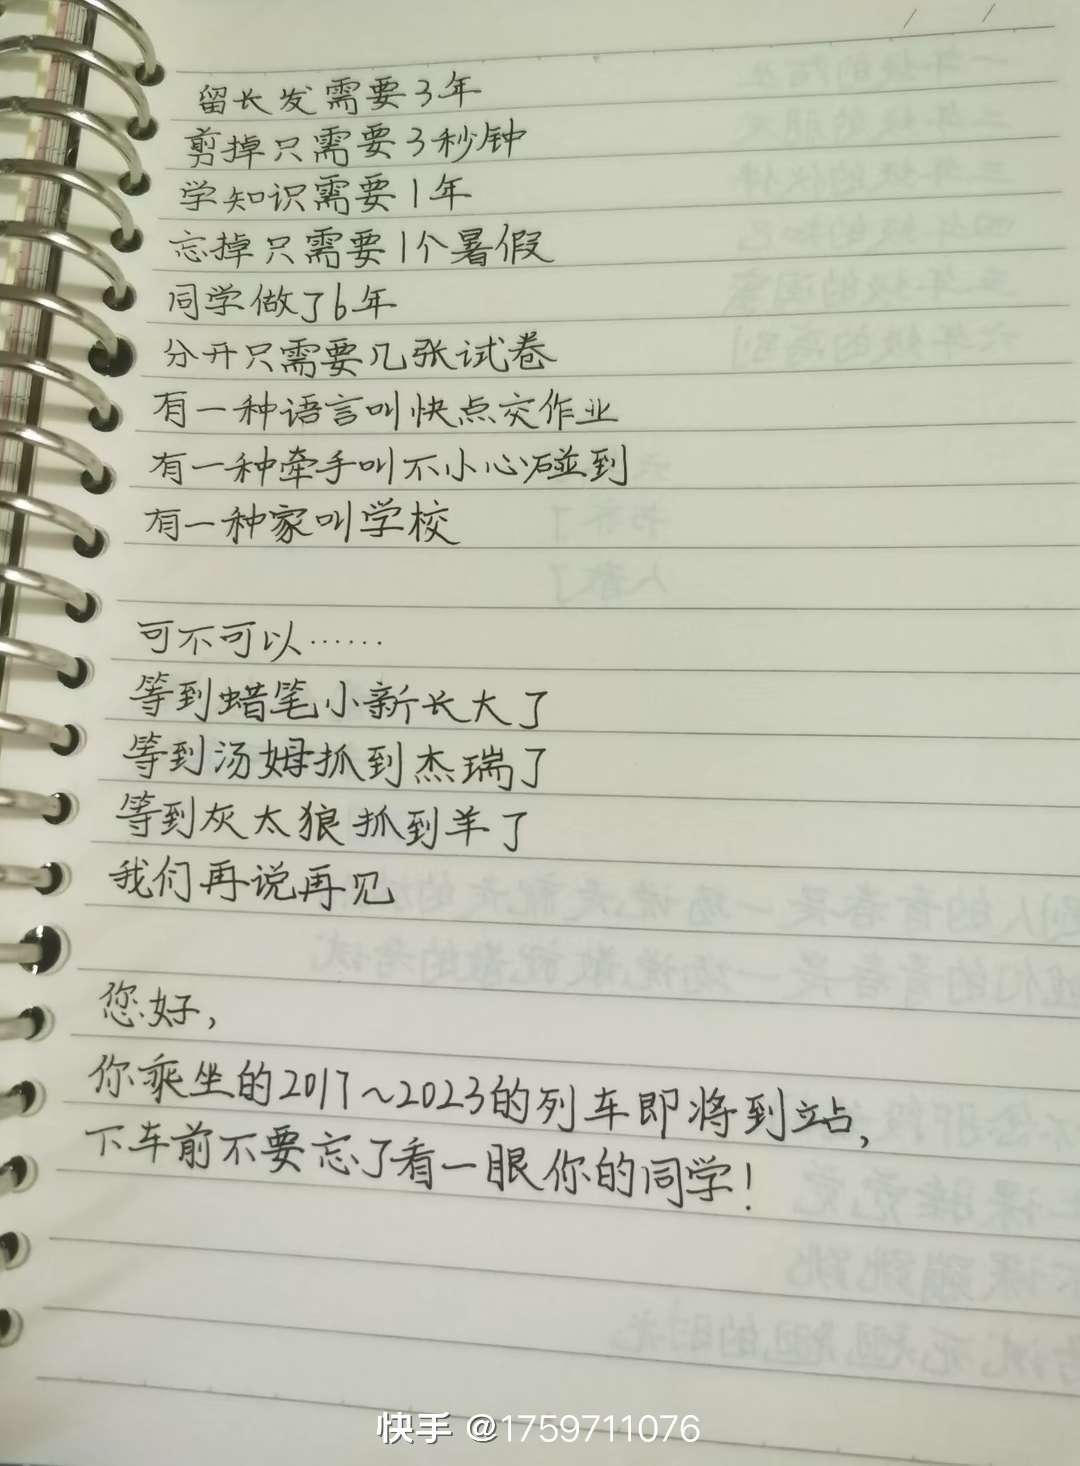 留长发需要3年
剪掉只需要3秒钟
学知识需要1年
忘掉只需要1个暑假
同学做了6年
分开只需要几张试卷
有一种语言叫快点交作业
有一种牵手叫不小心碰到
有一种家叫学校
可不可以……
等到蜡笔小新长大了
等到汤姆抓到杰瑞了
等到灰太狼抓到羊了
我们再说再见
您好,
你乘坐的2017~2023的列车即将到站,
下车前不要忘了看一眼你的同学!
快手 @1759711076